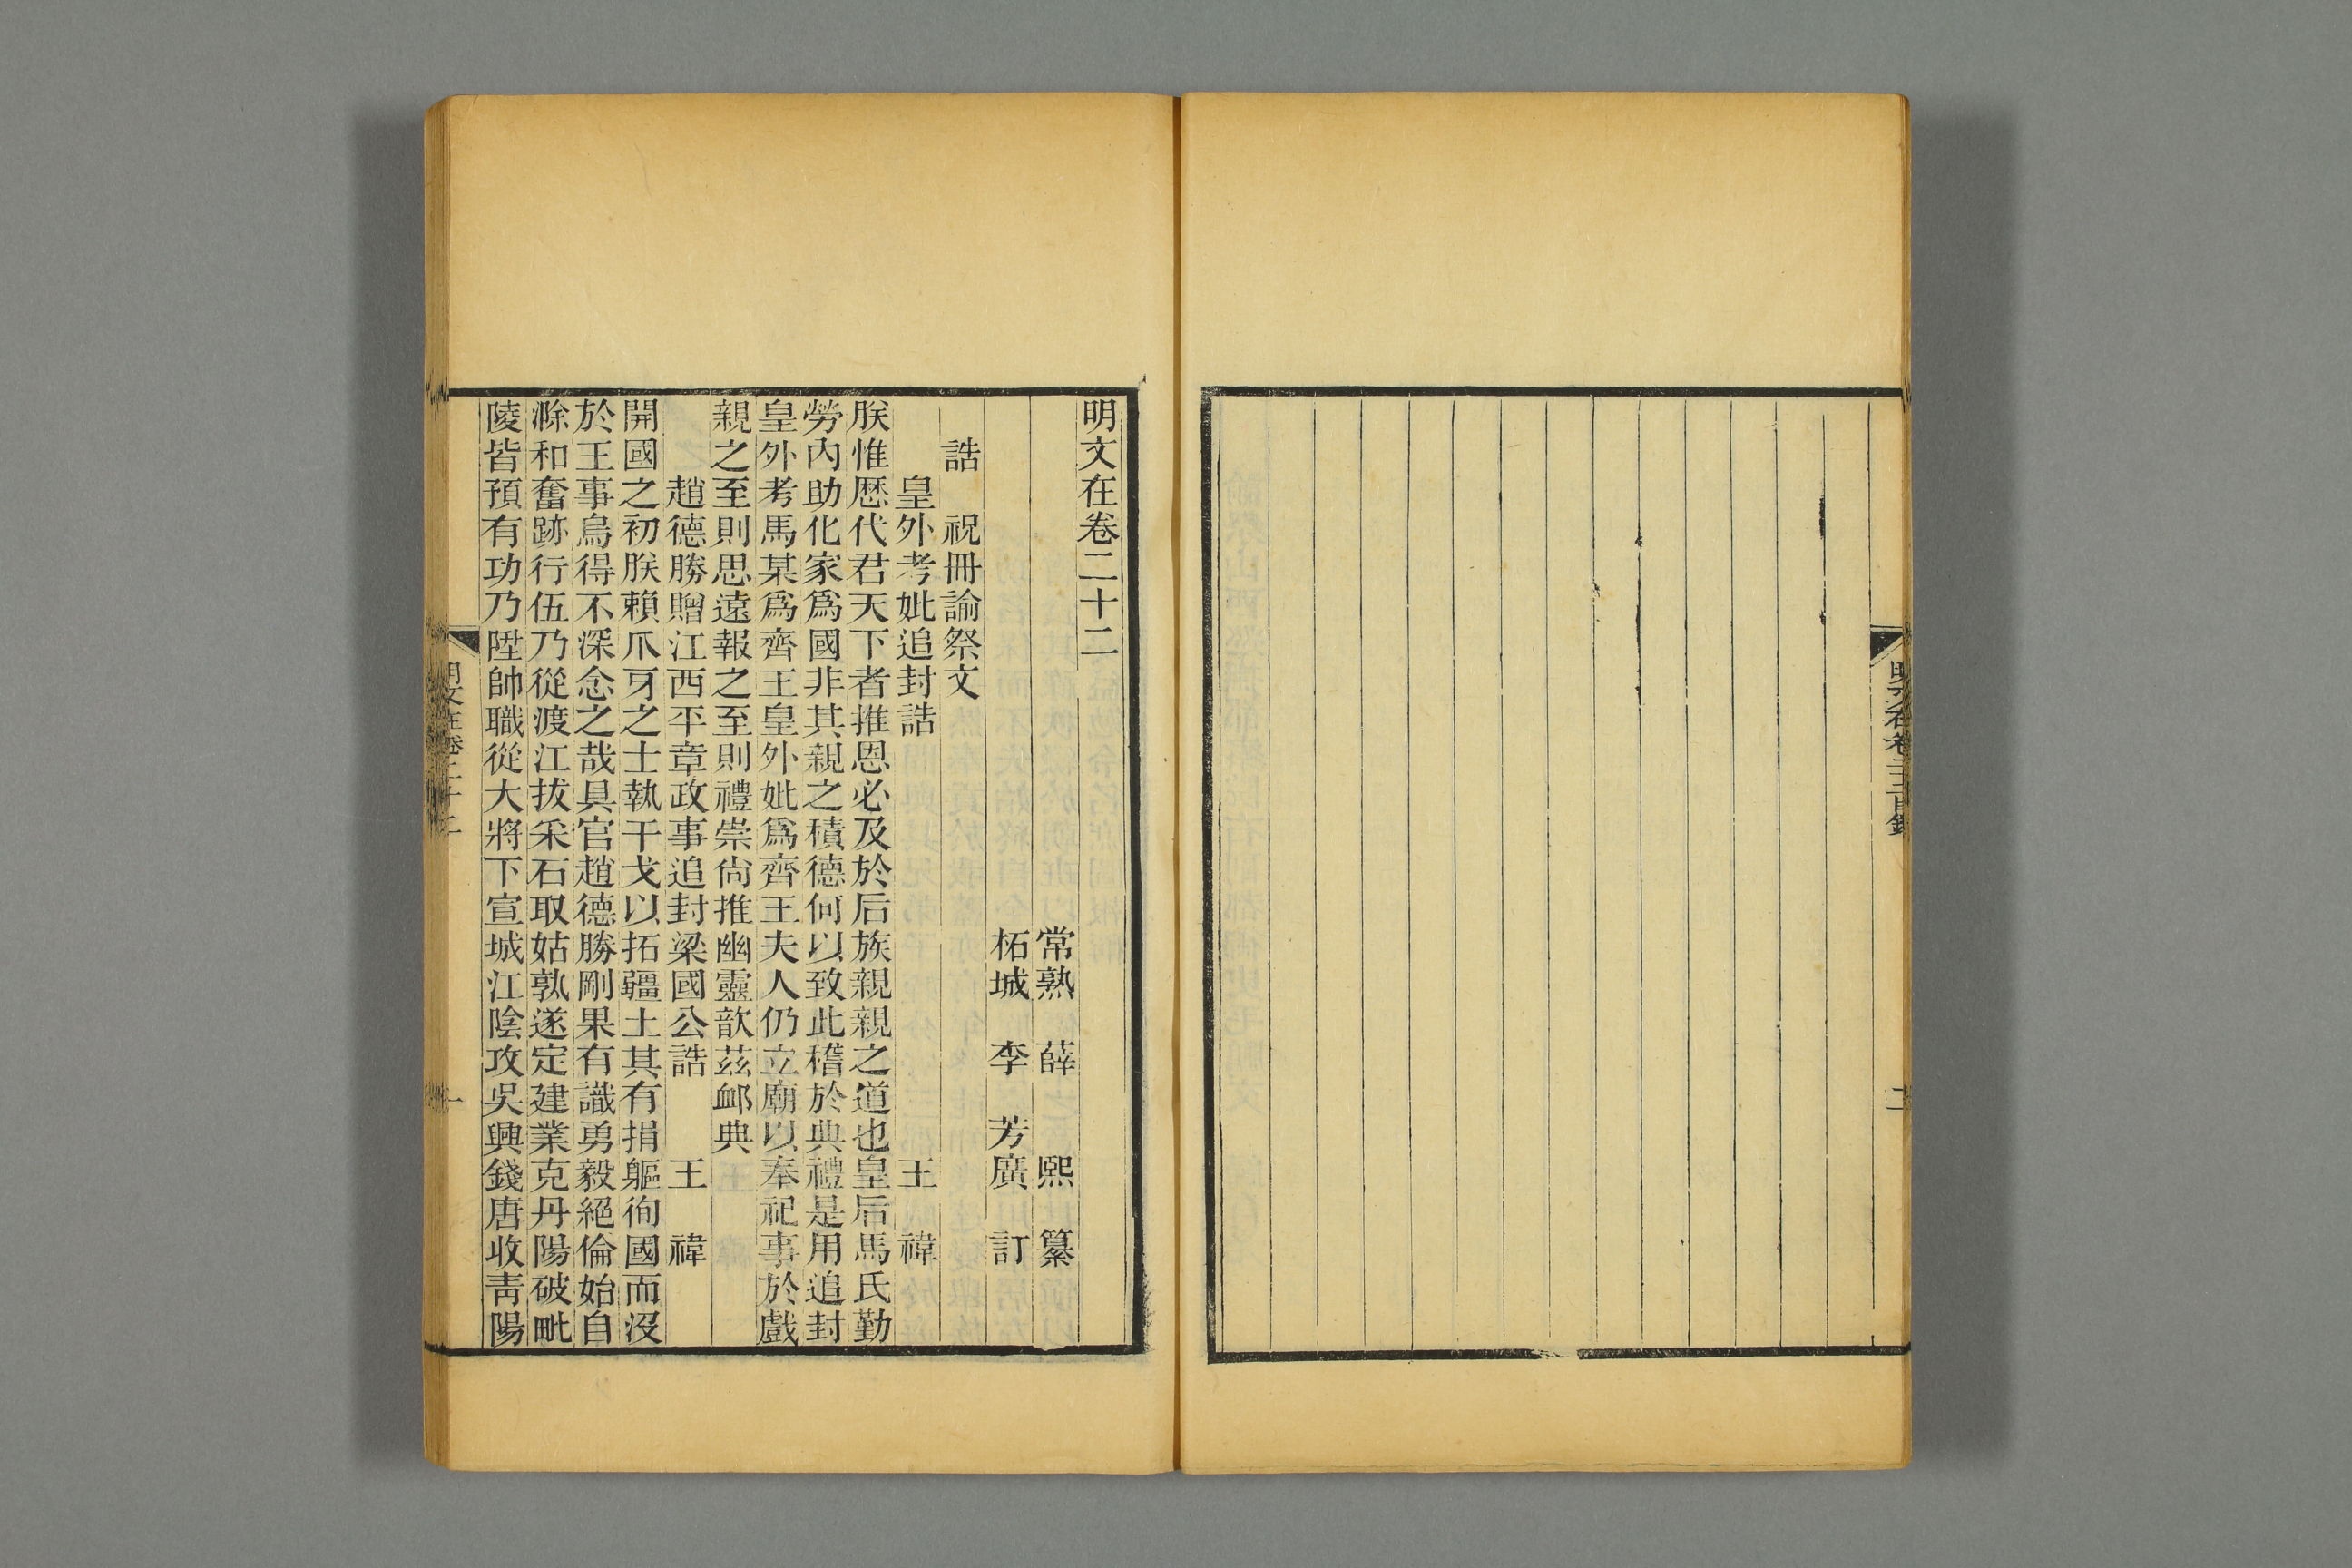 明文在卷二十二
常熟 薛 熙 纂
柘城 李 芳廣 訂
誥 祝冊諭祭文
皇外考妣追封誥 王 禕
朕惟歷代君天下者推恩必及於后族親親之道也皇后馬氏勤
勞內助化家爲國非其親之積德何以致此稽於典禮是用追封
皇外考馬某爲齊王皇外妣爲齊王夫人仍立廟以奉祀事於戲
親之至則思遠報之至則禮崇尙推幽靈歆茲卹典
趙德勝贈江西平章政事追封梁國公誥 王 禕
開國之初朕賴爪牙之士執干戈以拓疆土其有捐軀徇國而沒
於王事烏得不深念之哉具官趙德勝剛果有識勇毅絕倫始自
滁和奮跡行伍乃從渡江拔采石取姑孰遂定建業克丹陽破毗
陵皆預有功乃陞帥職從大將下宣城江陰攻吳興錢唐收靑陽
明文在卷二十二
一